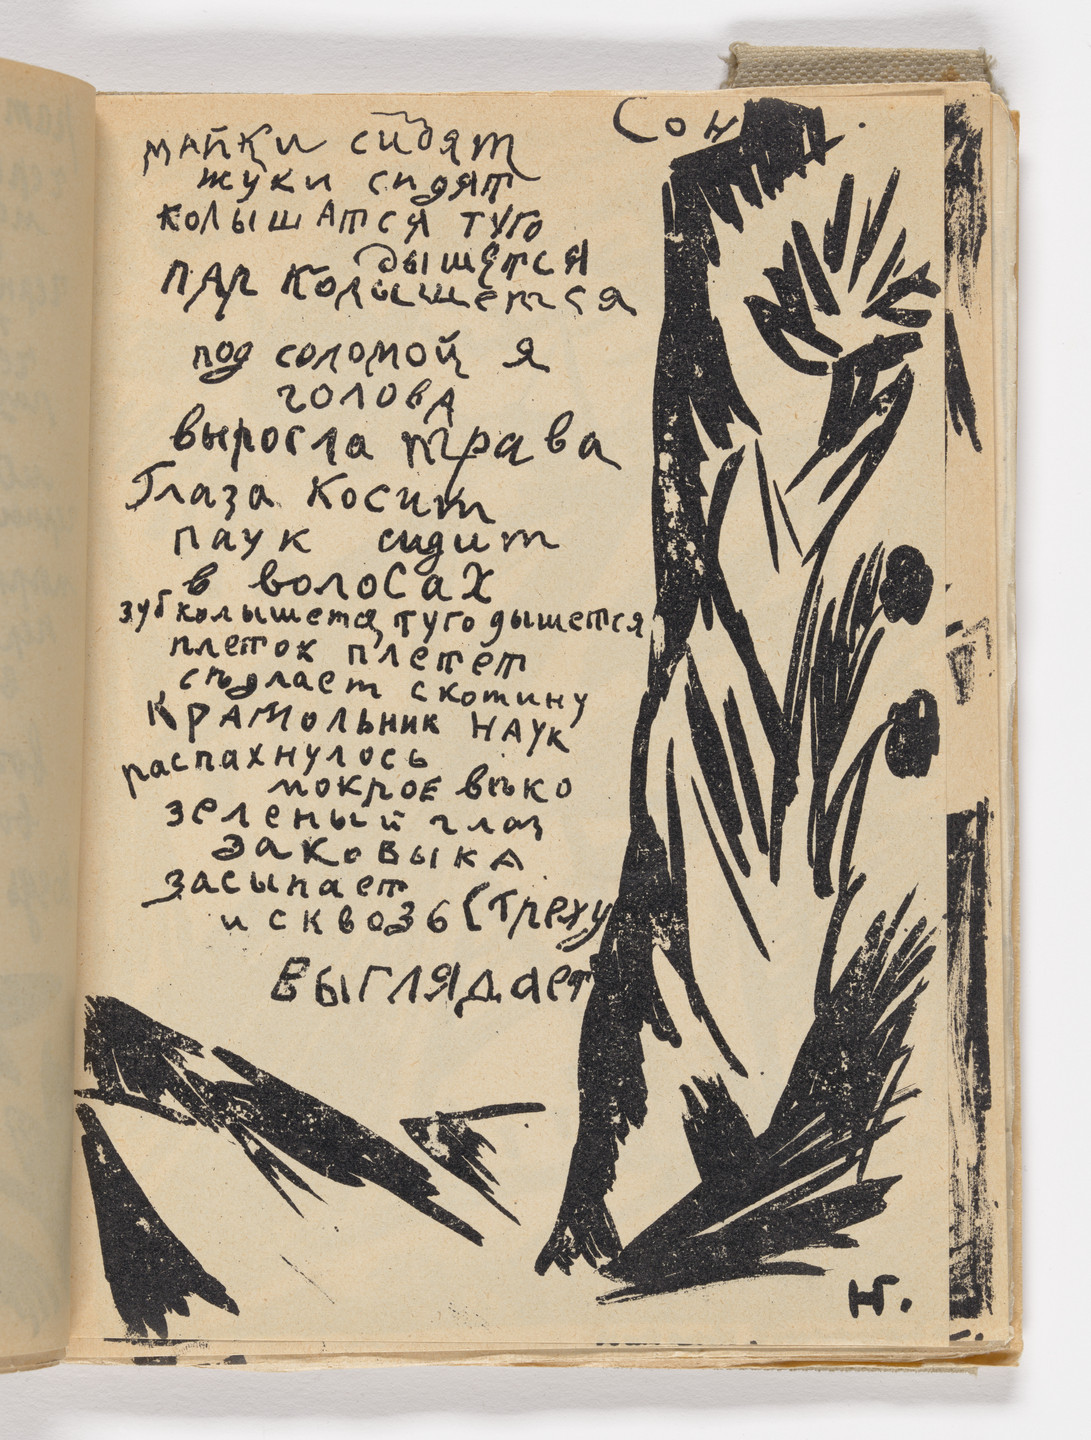 Сон.
майки сидят
жуки сидят
колышатся туго
дышется
пар колышется
под соломой я
голова
выросла трава
Глаза косит
паук сидит
в волосах
зуб колышетя туго дышется
плеток плетет
сѣдлает скотину
КРАМОЛЬНИК НАУК
распахнулось
мокрое вѣко
зеленый глаз
Заковыка
засыпает
и сквозь (треху
выглядает
Н.